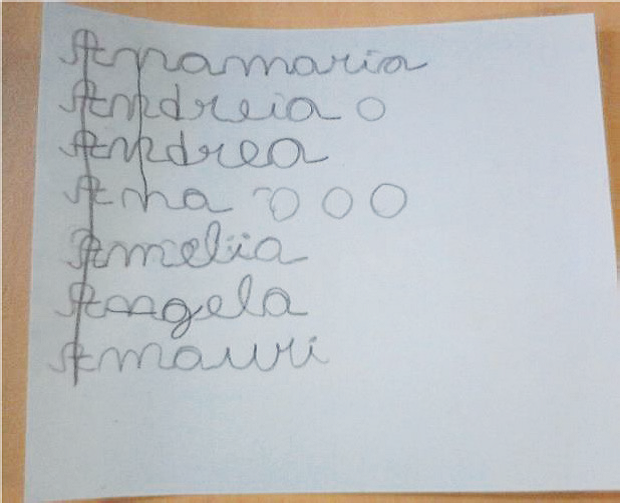 Anamaria
Andreia o
Andrea
Ana o o o
Amelia
Angela
Amauri